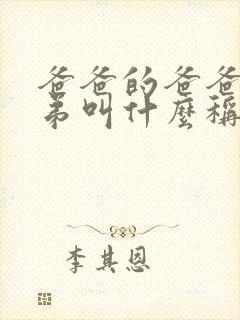 爸爸的爸爸
弟叫什麼稱
李其恩